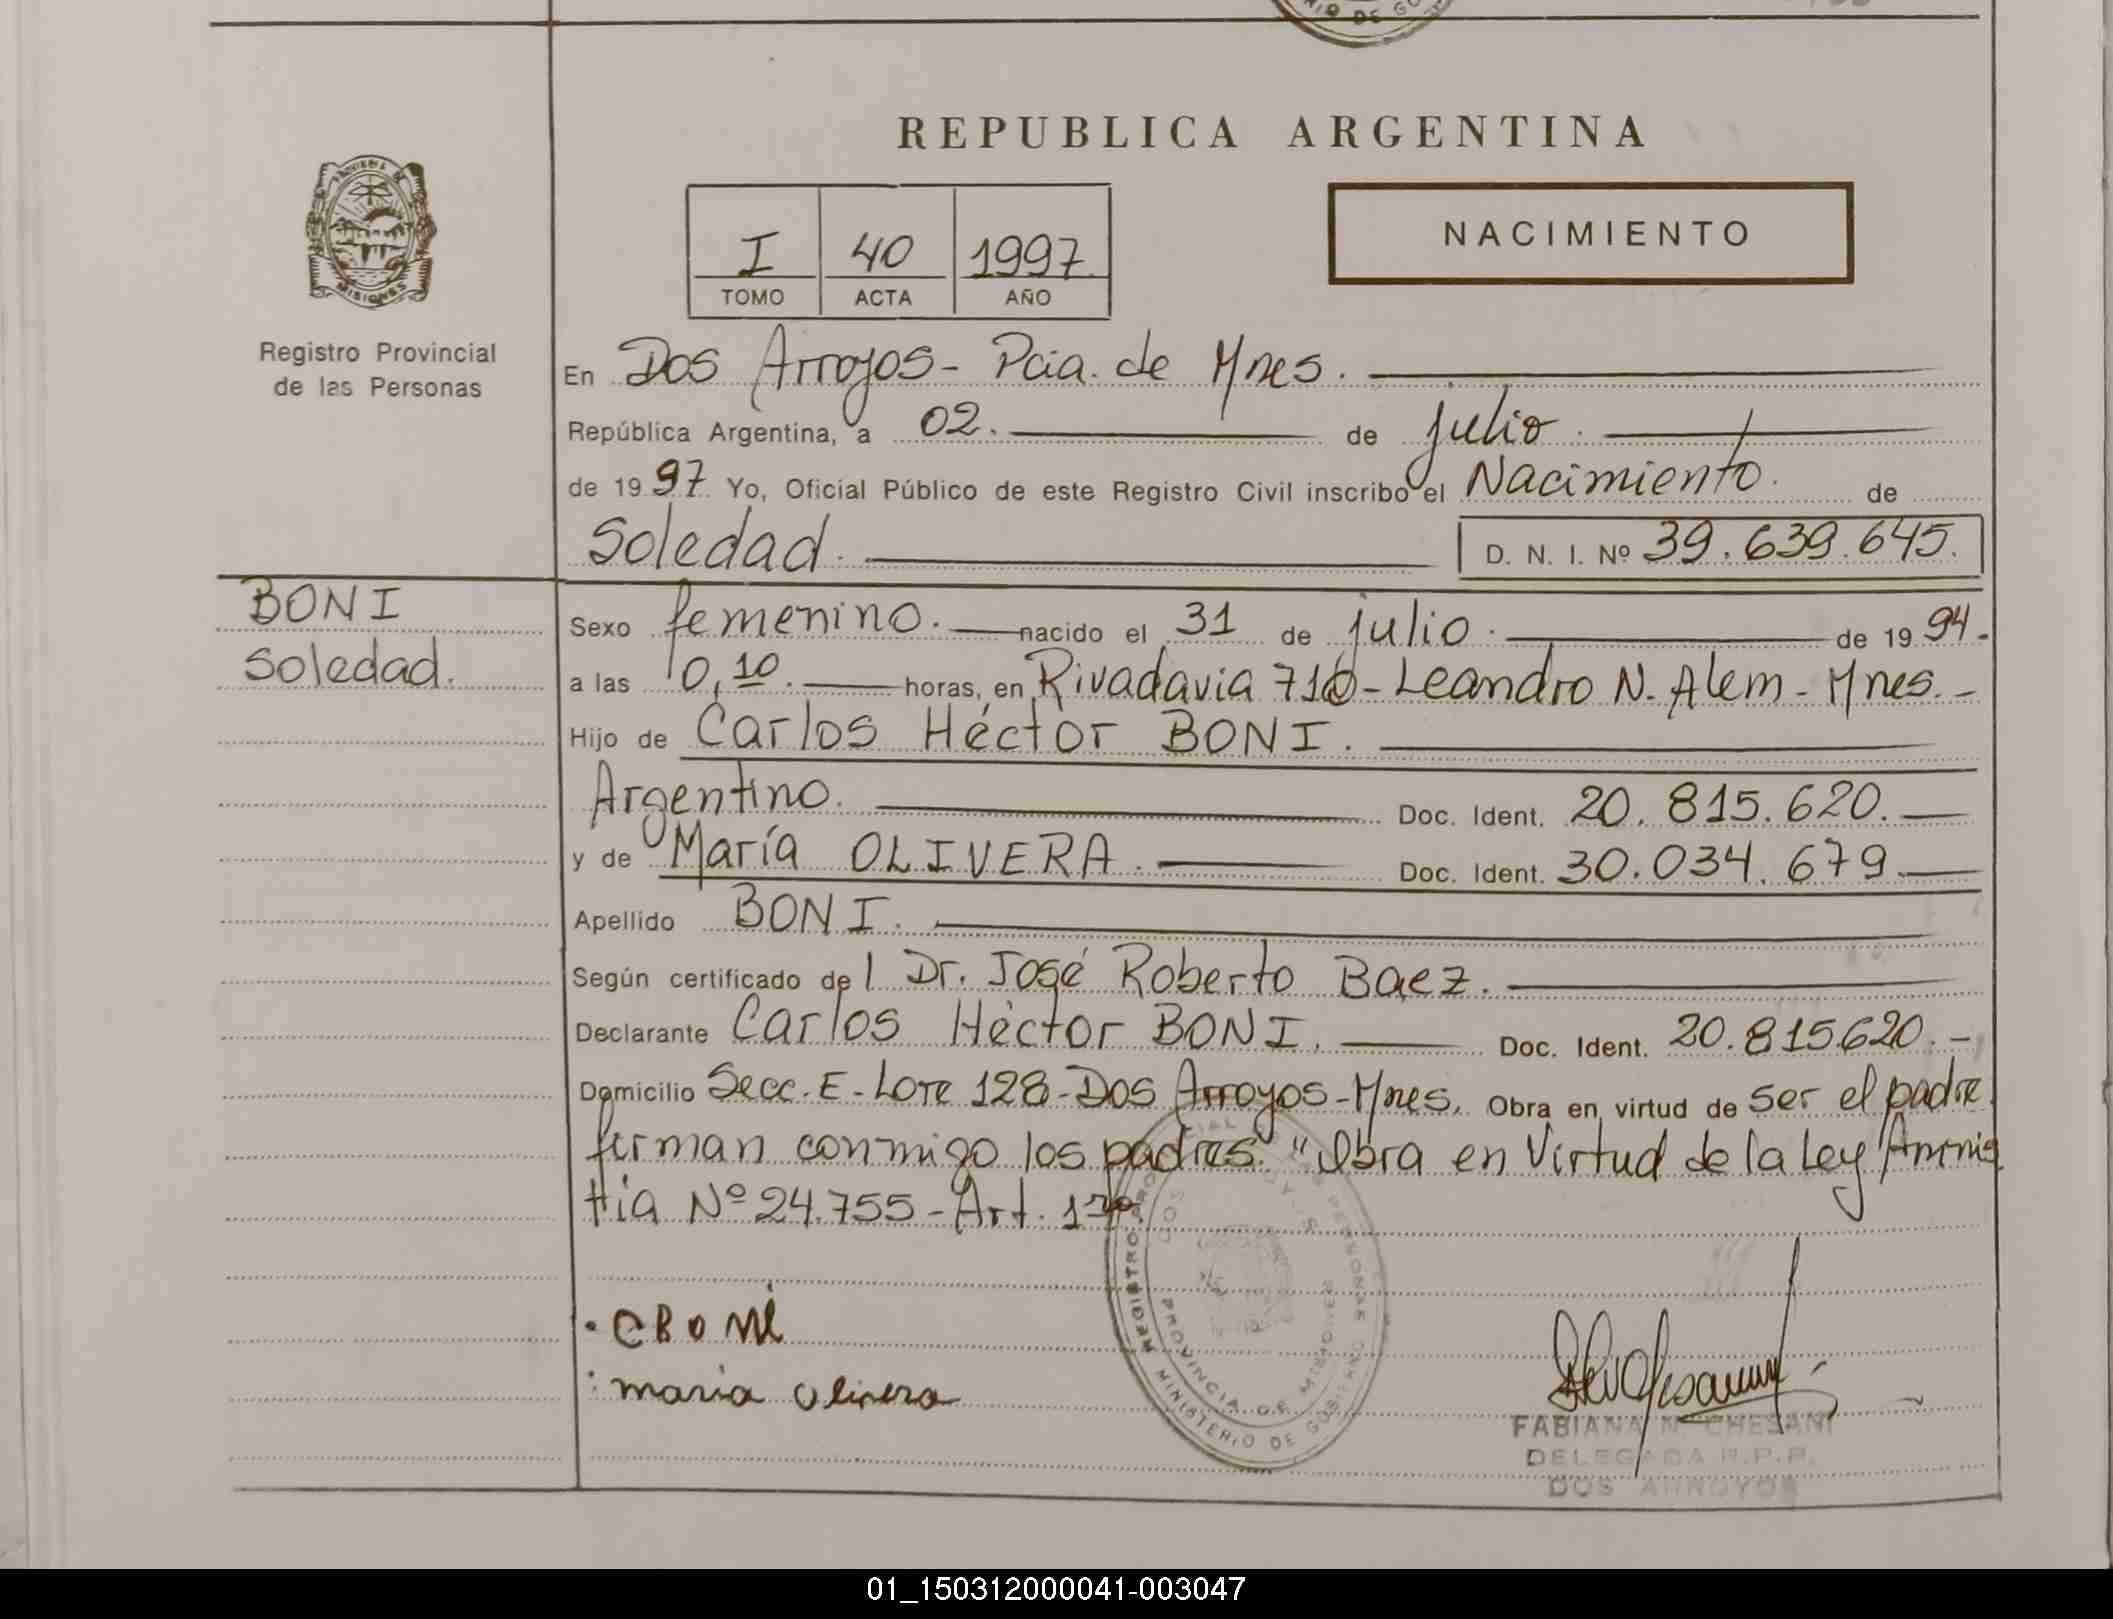 REPUBLICA ARGENTINA
NACIMIENTO
I 40 1997
TOMO ACTA AÑO
MISIONES
Registro Provincial
de las Personas
En Dos Arroyos - Pcia. de Mnes.
República Argentina, a 02. de julio.
de 1997 Yo, Oficial Público de este Registro Civil inscribo el Nacimiento. de
Soledad. D. N. I. Nº 39.639.645.
BONI
Soledad.
Sexo femenino. nacido el 31 de julio. de 1994.
a las 0,10. horas, en Rivadavia 710 - Leandro N. Alem - Mnes. -
Hijo de Carlos Héctor BONI.
Argentino. Doc. Ident. 20.815.620.
y de María OLIVERA. Doc. Ident. 30.034.679
Apellido BONI.
Según certificado del Dr. José Roberto Baez.
Declarante Carlos Héctor BONI. Doc. Ident. 20.815620. -
Domicilio Secc. E - Lote 128 - Dos Arroyos - Mnes. Obra en virtud de ser el padre.
firman conmigo los padres. "Obra en Virtud de la Ley Amnis
tia Nº 24.755 - Art. 1º
REGISTRO PROVINCIAL DE LAS PERSONAS
DOS ARROYOS
PROVINCIA DE MISIONES
MINISTERIO DE GOBIERNO
CBONi
maria olivera
FABIANA N. CHESANI
DELEGADA R.P.P.
DOS ARROYOS
01_150312000041-003047